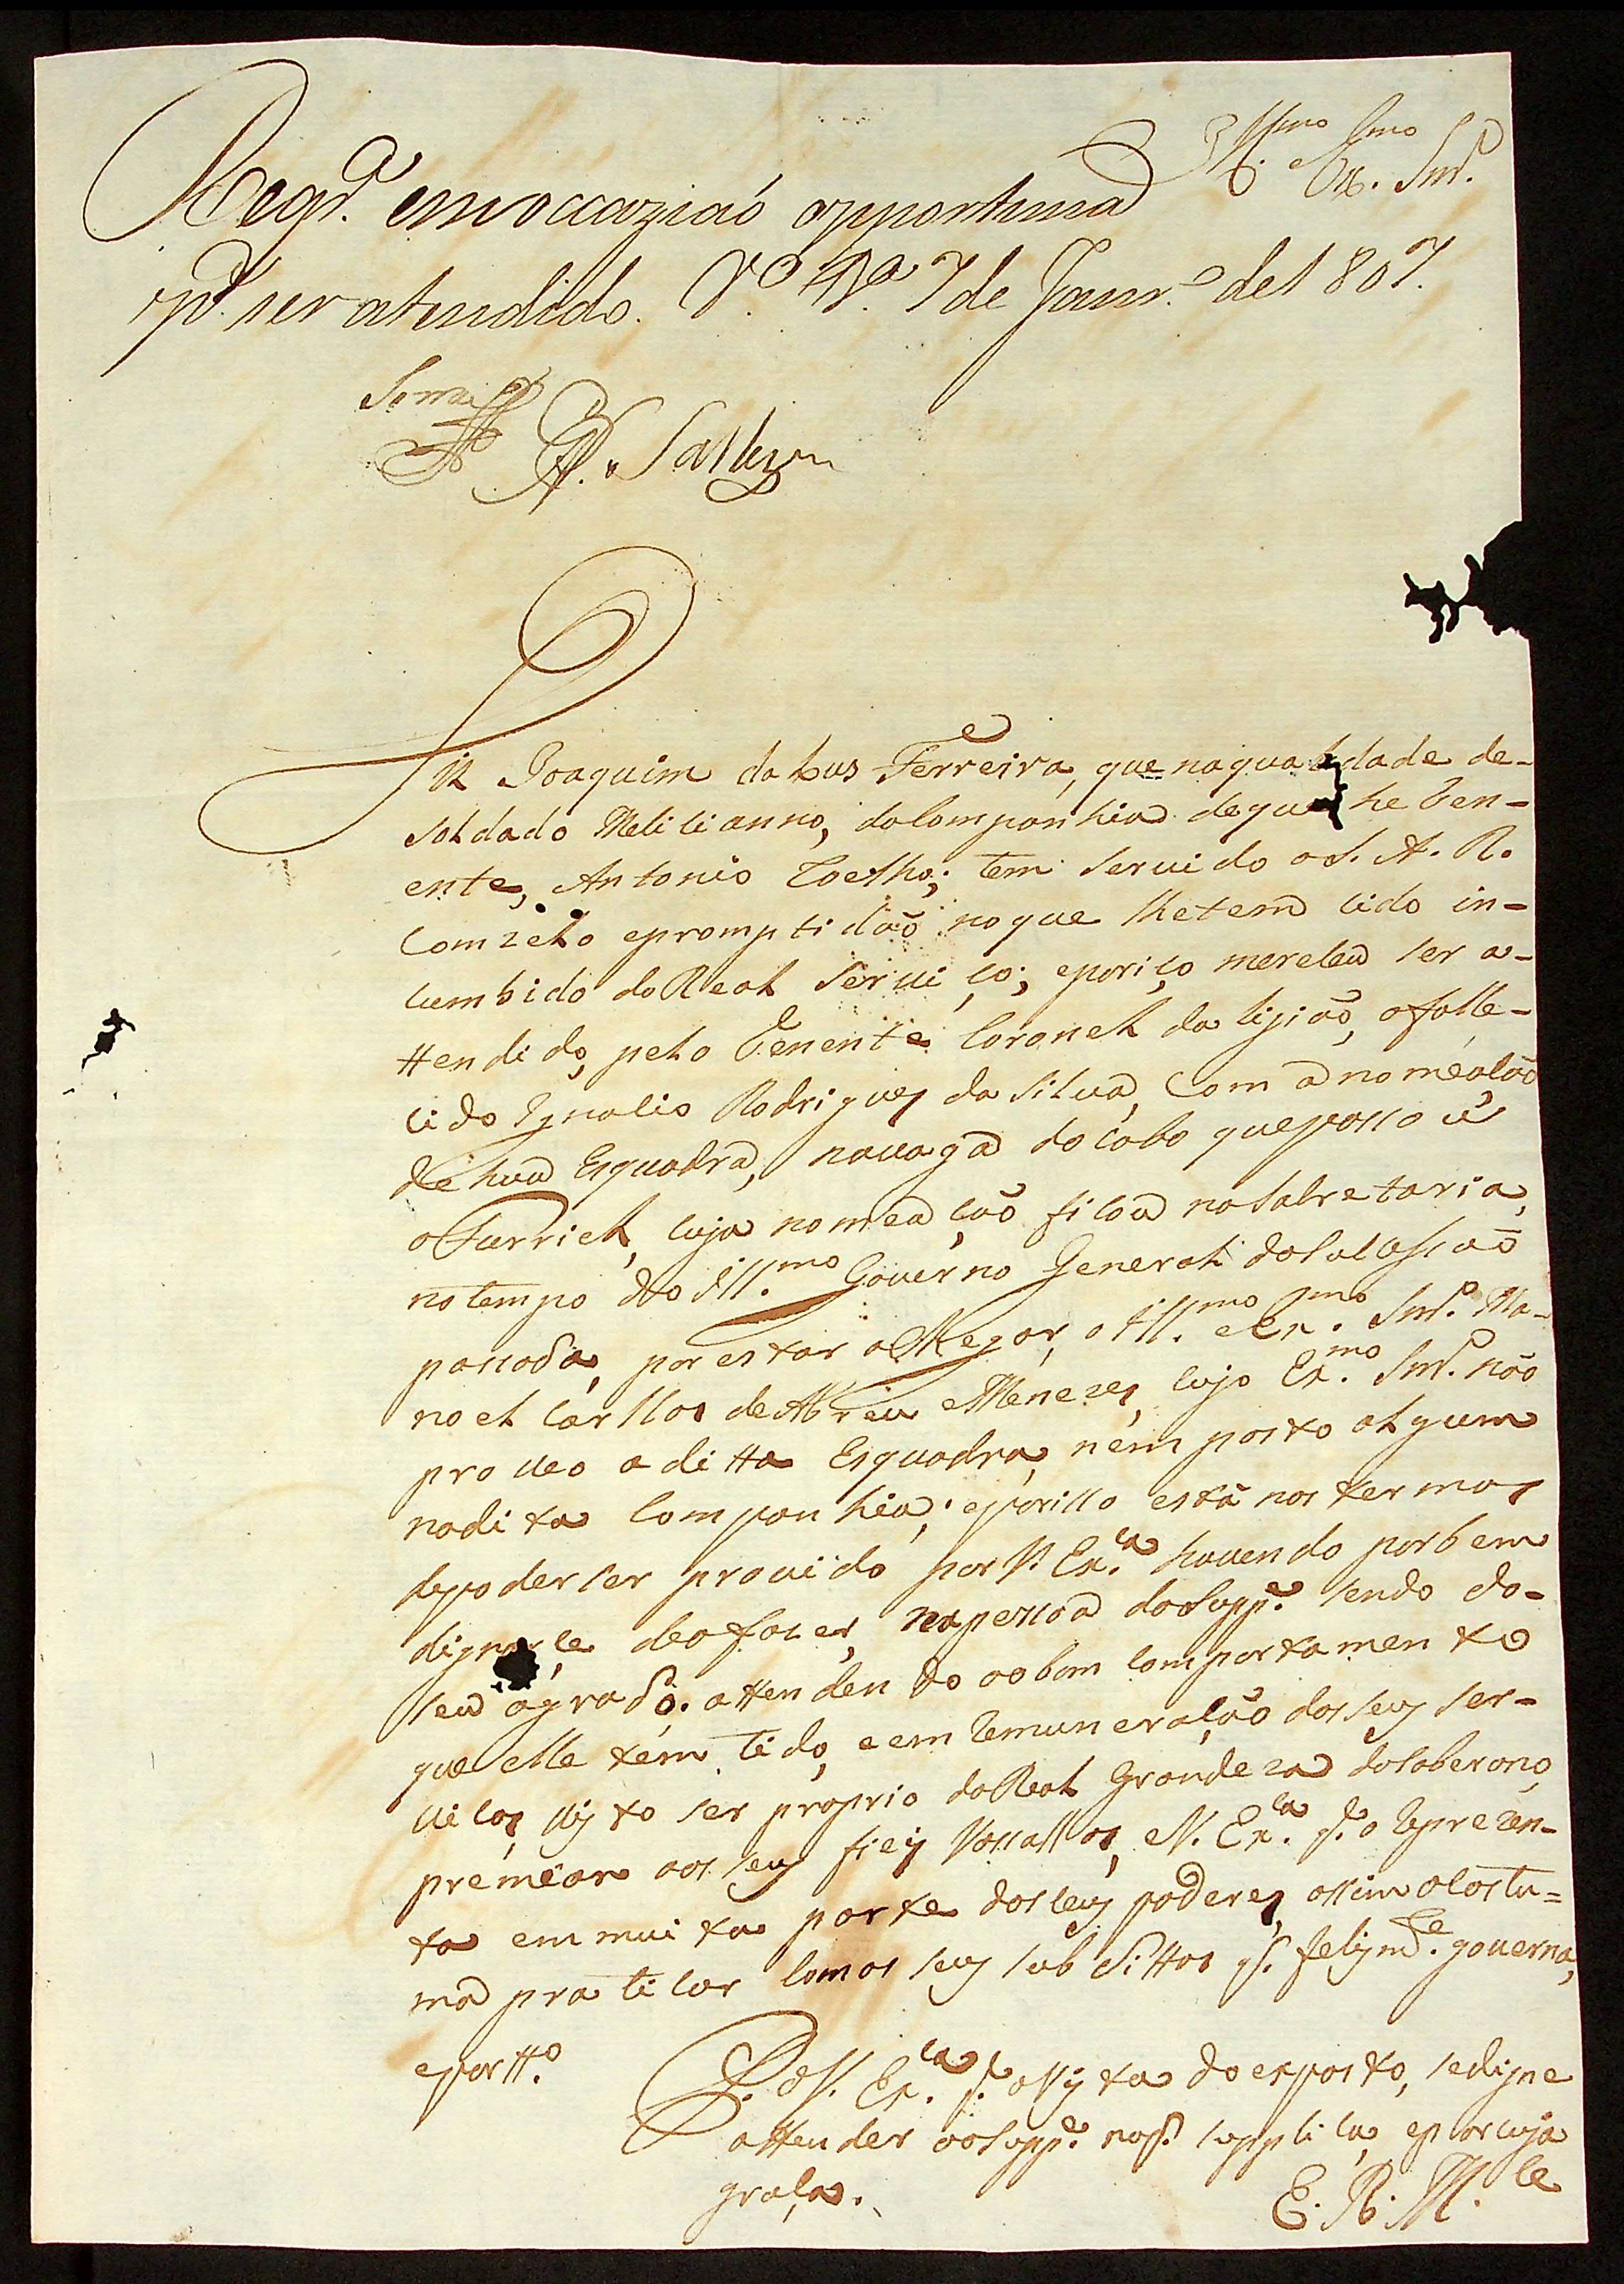 Ill.mo e Ex.mo Snr.
Reqr. em occaziaó opportuna
p.a ser atendido. V.a B.a 7 de Janr.o de 1807.
Diz Joaquim da Lus Ferreira, que na qualidade de-
Soldado Melicianno, da Companhia de que he Ten-
ente, Antonio Coelho; tem servido a S. A. R.
Com zelo e promptidaõ no que lhe tem cido in-
cumbido do Real Servico; e por iço mereceu ser a-
ttendido, pelo Tenente Coronel da Ligiaõ, o falle-
cido Ignacio Rodrigues da Silva, Com a nomeacaõ
de hua Esquadra, na vaga do Cabo que passou a
Furriel, cuja nomeacaõ ficou na Sacretaria,
no tempo do Ill.mo Governo General da Sucessaõ
passada, por estar a chegar, o Ill.mo e Ex.mo Snr. Ma-
noel Carllos de Abreu e Menezes, cujo Ex.mo Snr. não
proveo a ditta Esquadra, nem posto algum
na dita Companhia; e por isso está nos termos
de poder ser provido por V. Ex.ca havendo por bem
dignarce de o fazer, na pessoa do Supp.e sendo do-
seu agrado. attendendo ao bom comportamento
que elle tem tido, e em remuneracaõ dos seus ser-
vicos, visto ser proprio da Real Grandeza do Soberano,
premear aos seus fieis Vassallos, e V. Ex.ca q. o reprezen-
ta em muita parte dos seus poderes, assim o costu-
ma praticar com os seus subdittos q. felism.te governa,
e por tt.o
P. a V. Ex.ca q. a vista do exposto, se digne
attender ao Supp.e na p. supplica, e por cuja
graca.
E. R. M.ce